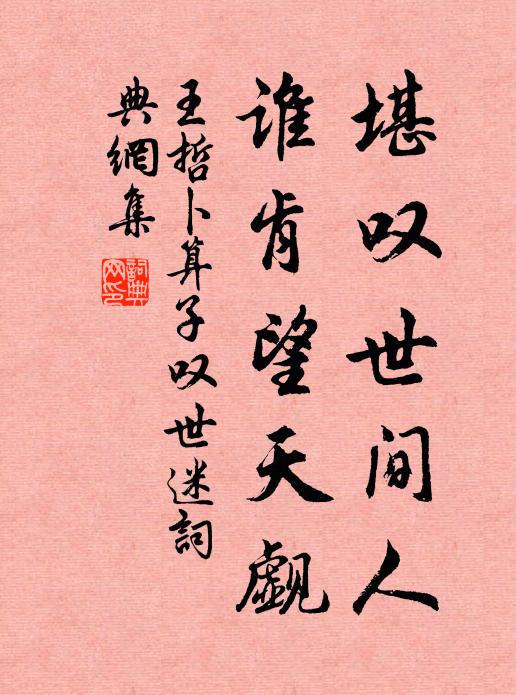 堪叹世间人
谁肯望天觑
王哲卜算子叹世迷词
典網集
詞典
网印